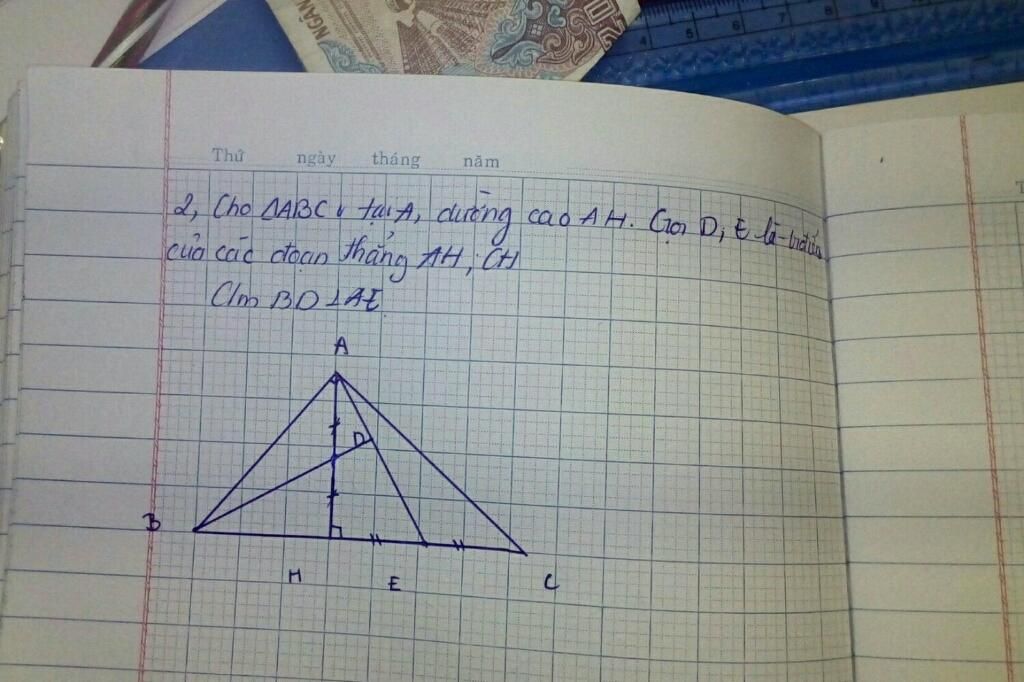 NGÂN
4 5 6 7 8 9
Thứ ngày tháng năm
2, Cho ΔABC v tại A, đường cao AH. Gọi D, E là
của các đoạn thẳng AH, CH
C/m BD ⊥ AE
A
D
B
H E C